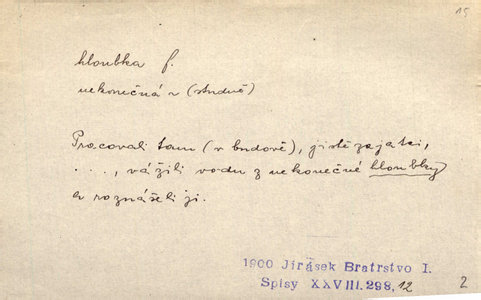 15
hloubka f.
nekonečná v (studně)
Pracovali tam (v budově), jistě zajatci,
. . . ., vážili vodu z nekonečné hloubky
a roznášeli ji.
1900 Jirásek Bratrstvo I.
Spisy XXVIII. 298, 12
2